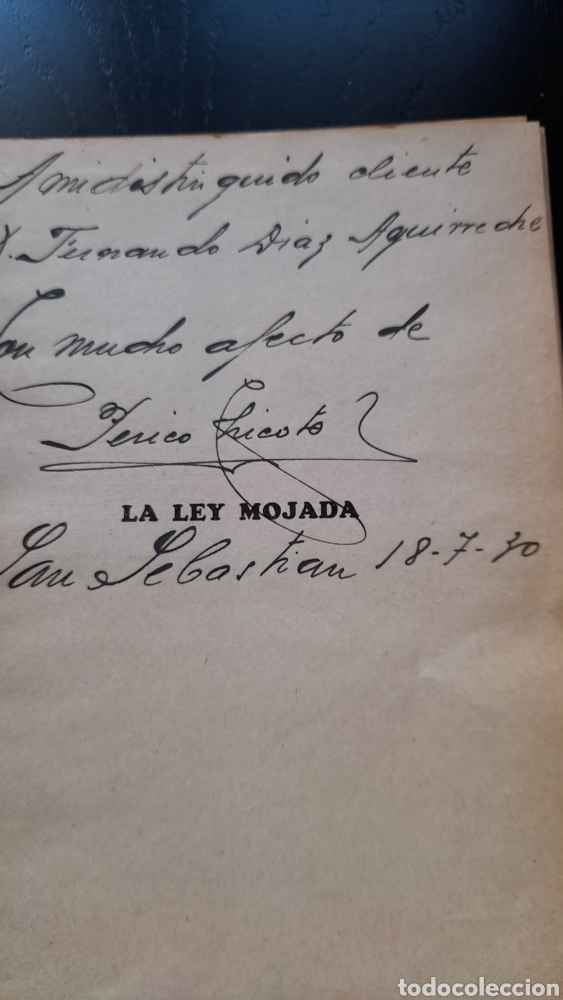 A mi distinguido cliente
D. Fernando Diaz Aguirreche
Con mucho afecto de
Perico Chicote
LA LEY MOJADA
San Sebastian 18-7-30
todocoleccion
todocoleccion.net